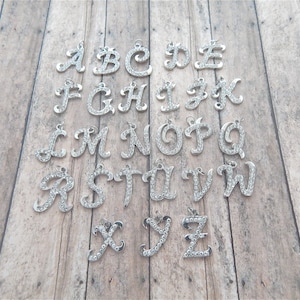 A B C D E
F G H I J K
L M N O P Q
R S T U V W
X Y Z